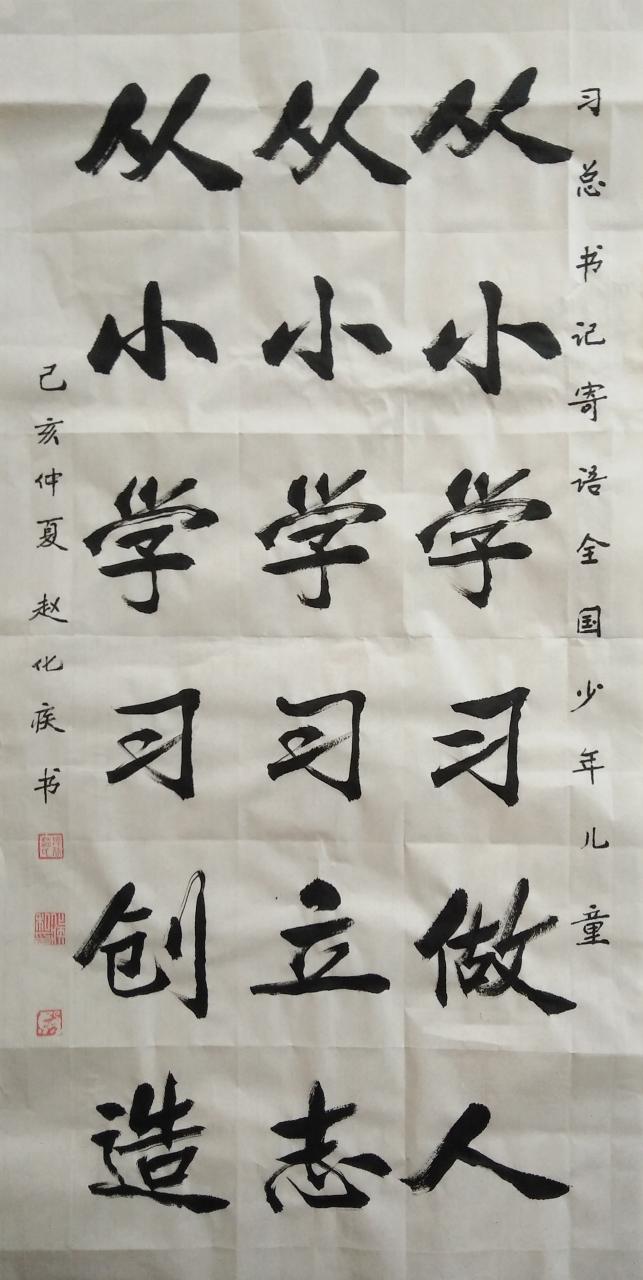 习总书记寄语全国少年儿童
从小学习做人
从小学习立志
从小学习创造
己亥仲夏 赵化疾书